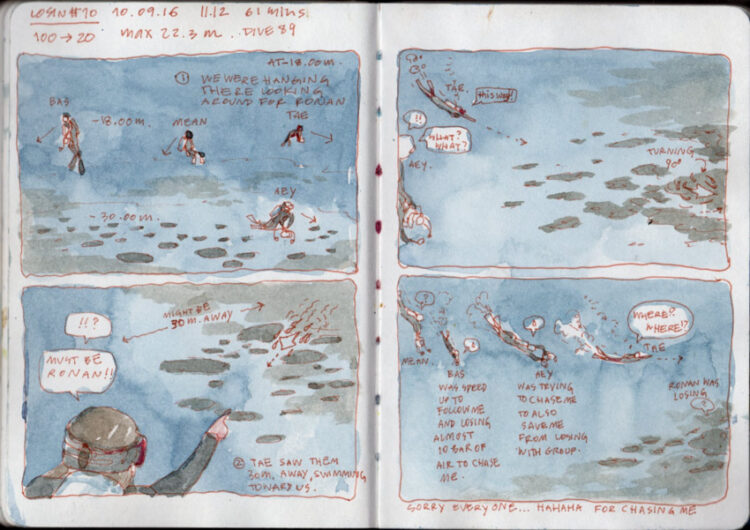 LOSIN#10 10.09.16 11.12 61 mins.
100→20 MAX 22.3 m.. DIVE 89
AT-18.00m.
① WE WERE HANGING
THERE LOOKING
AROUND FOR RONAN
BAS
-18.00m.
MEAN
TAE
AEY
-30.00m.
!!?
MUST BE
RONAN!!
MIGHT BE
30m. AWAY
② TAE SAW THEM
30m. AWAY, SWIMMING
TOWARD US.
TAE.
this way!
!!
WHAT?
WHAT?
AEY.
TURNING
90°
?
MEAN
BAS
WAS SPEED
UP TO
FOLLOW ME
AND LOSING
ALMOST
10 BAR OF
AIR TO CHASE
ME.
AEY
WAS TRYING
TO CHASE ME
TO ALSO
SAVE ME
FROM LOSING
WITH GROUP.
WHERE?
WHERE!?
TAE
RONAN WAS
LOSING
?
SORRY EVERYONE... HAHAHA FOR CHASING ME